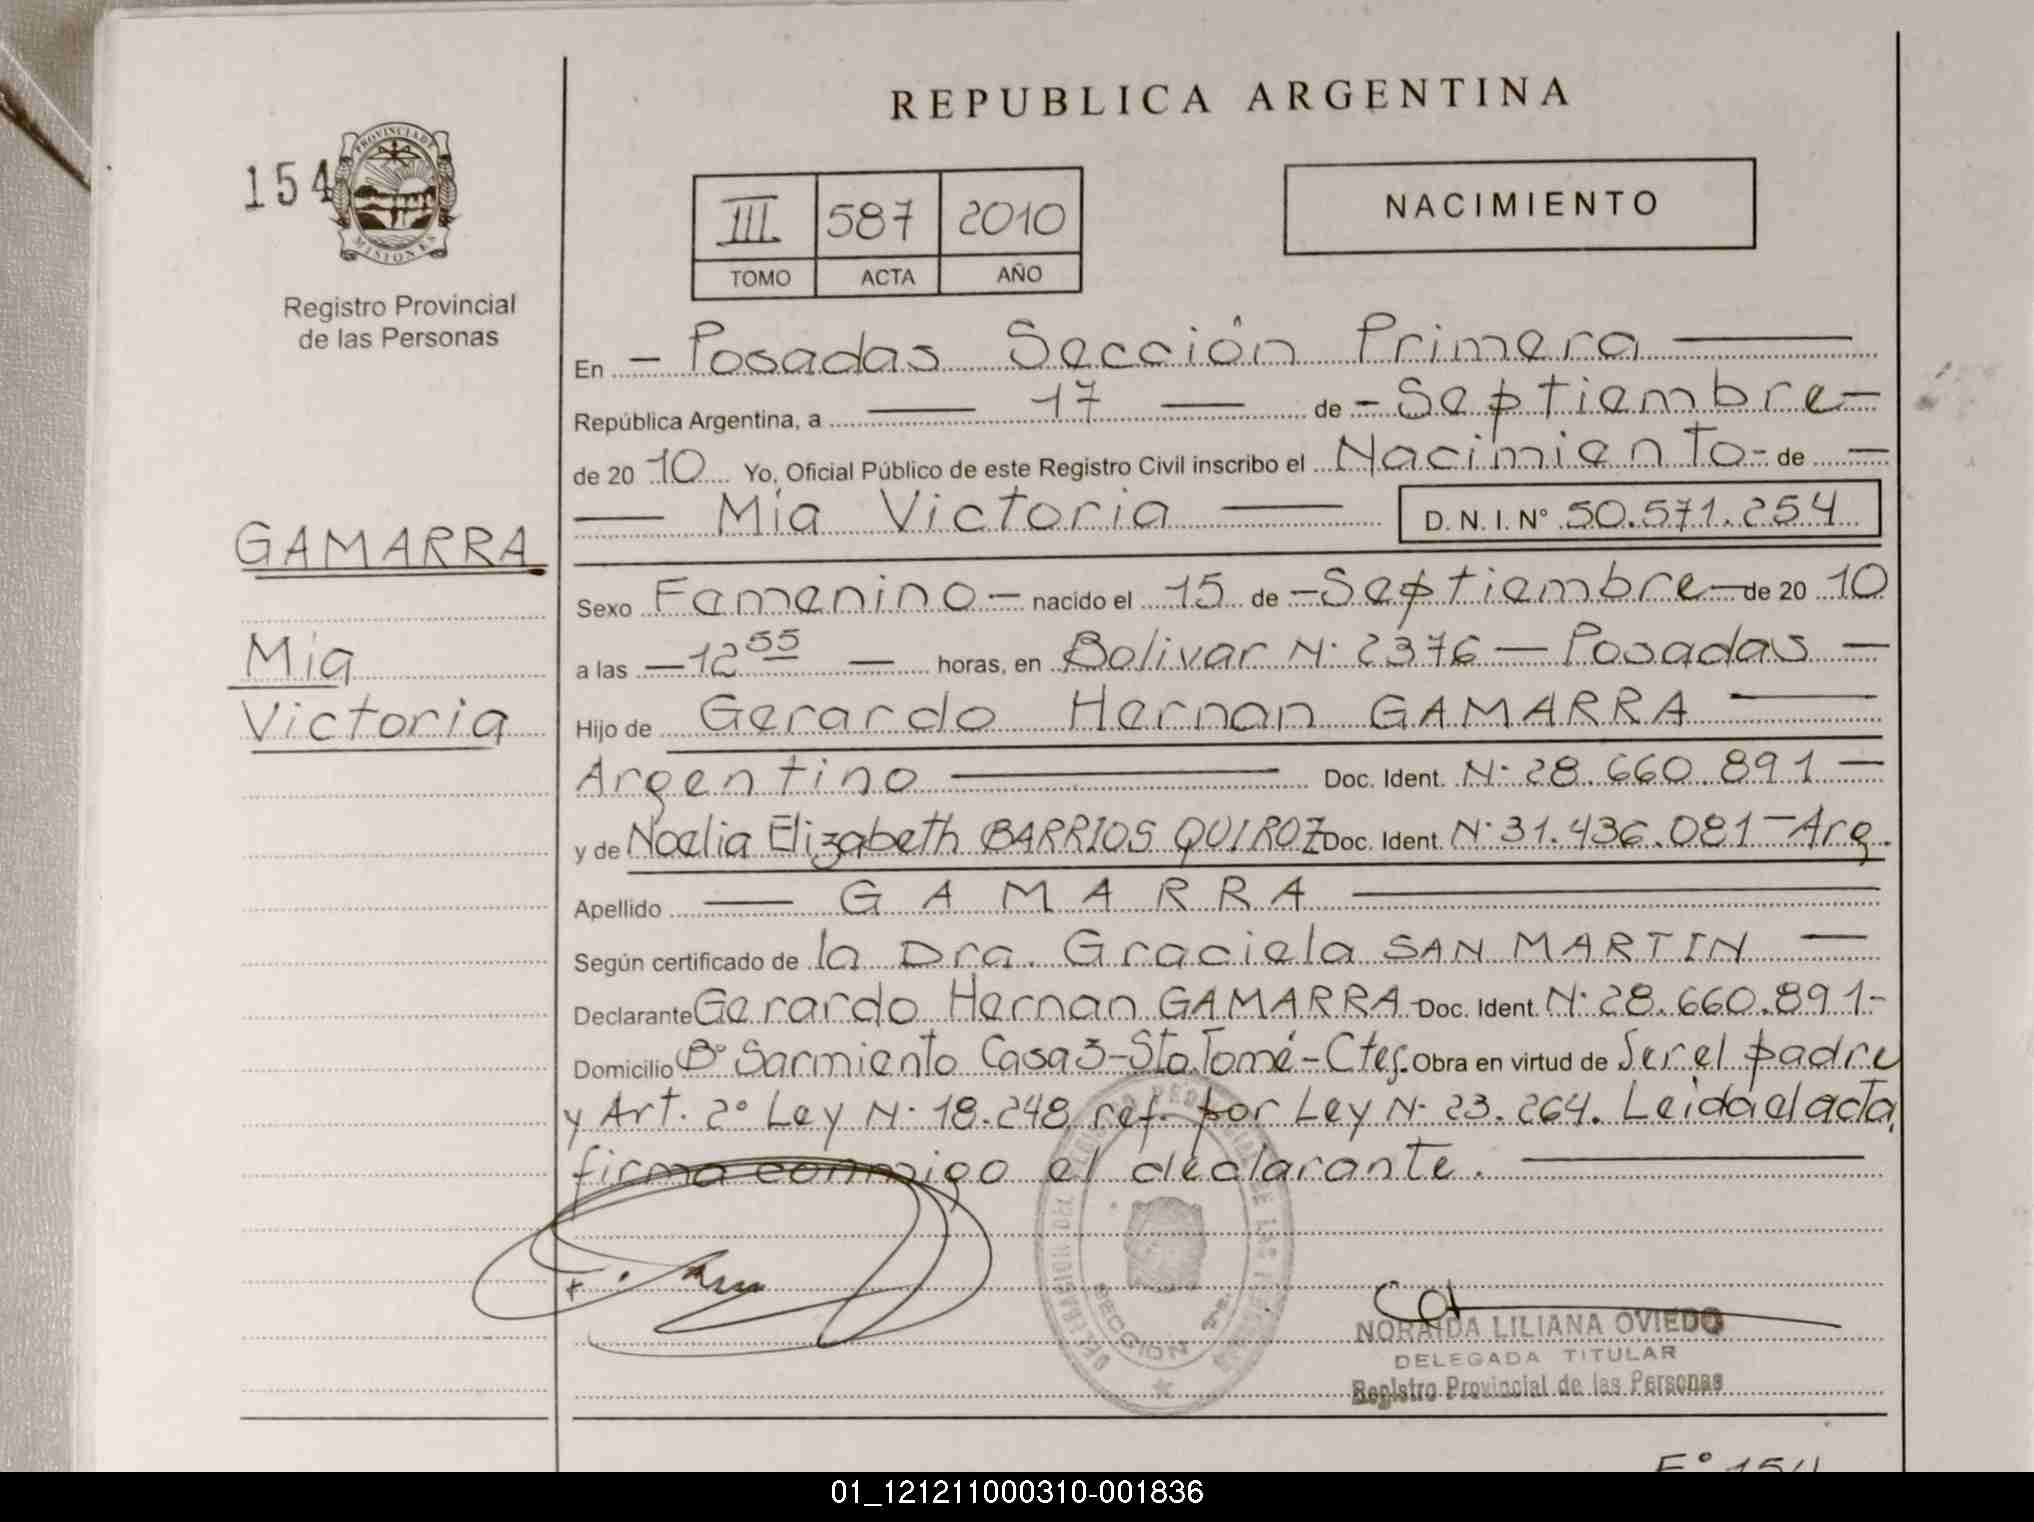 REPUBLICA ARGENTINA
154
PROVINCIA DE
MISIONES
III 587 2010
TOMO ACTA AÑO
NACIMIENTO
Registro Provincial
de las Personas
En - Posadas Sección Primera
República Argentina, a 17 de - Septiembre -
de 20 10 Yo, Oficial Público de este Registro Civil inscribo el Nacimiento - de -
Mía Victoria D. N. I. N° 50.571.254
GAMARRA
Mía
Victoria
Sexo Femenino - nacido el 15 de - Septiembre - de 20 10
a las - 12 55 - horas, en Bolivar N° 2376 - Posadas -
Hijo de Gerardo Hernan GAMARRA
Argentino Doc. Ident. N° 28.660.891 -
y de Noelia Elizabeth BARRIOS QUIROZ Doc. Ident. N° 31.436.081 - Arg.
Apellido GAMARRA
Según certificado de la Dra. Graciela SAN MARTIN -
Declarante Gerardo Hernan GAMARRA - Doc. Ident. N° 28.660.891 -
Domicilio B° Sarmiento Casa 3 - Sto. Tomé - Ctes. Obra en virtud de Ser el padre
y Art. 2° Ley N° 18.248 ref. por Ley N° 23.264. Leida el acta,
firma conmigo el declarante.
SECCION 1ª
NORAIDA LILIANA OVIEDO
DELEGADA TITULAR
Registro Provincial de las Personas
F° 154
01_121211000310-001836